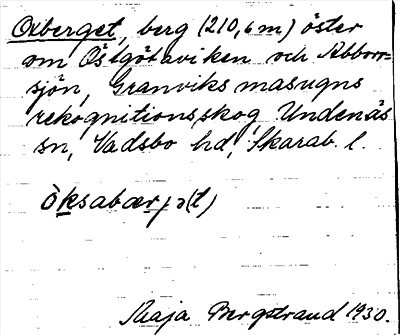 Oxberget, berg (210,6 m) öster
om Östgötaviken och Abborr-
sjön, Granviks masugns
rekognitionsskog, Undenäs
sn, Vadsbo hd, Skarab. l.
òksabærjə(t)
Maja Bergstrand 1930.